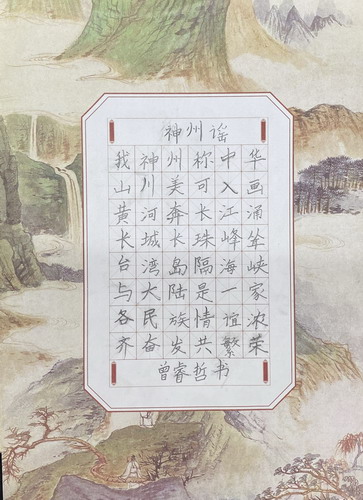 神州谣
我神州称中华
山川美可入画
黄河奔长江涌
长城长珠峰耸
台湾岛隔海峡
与大陆是一家
各民族情谊浓
齐奋发共繁荣
曾睿哲书